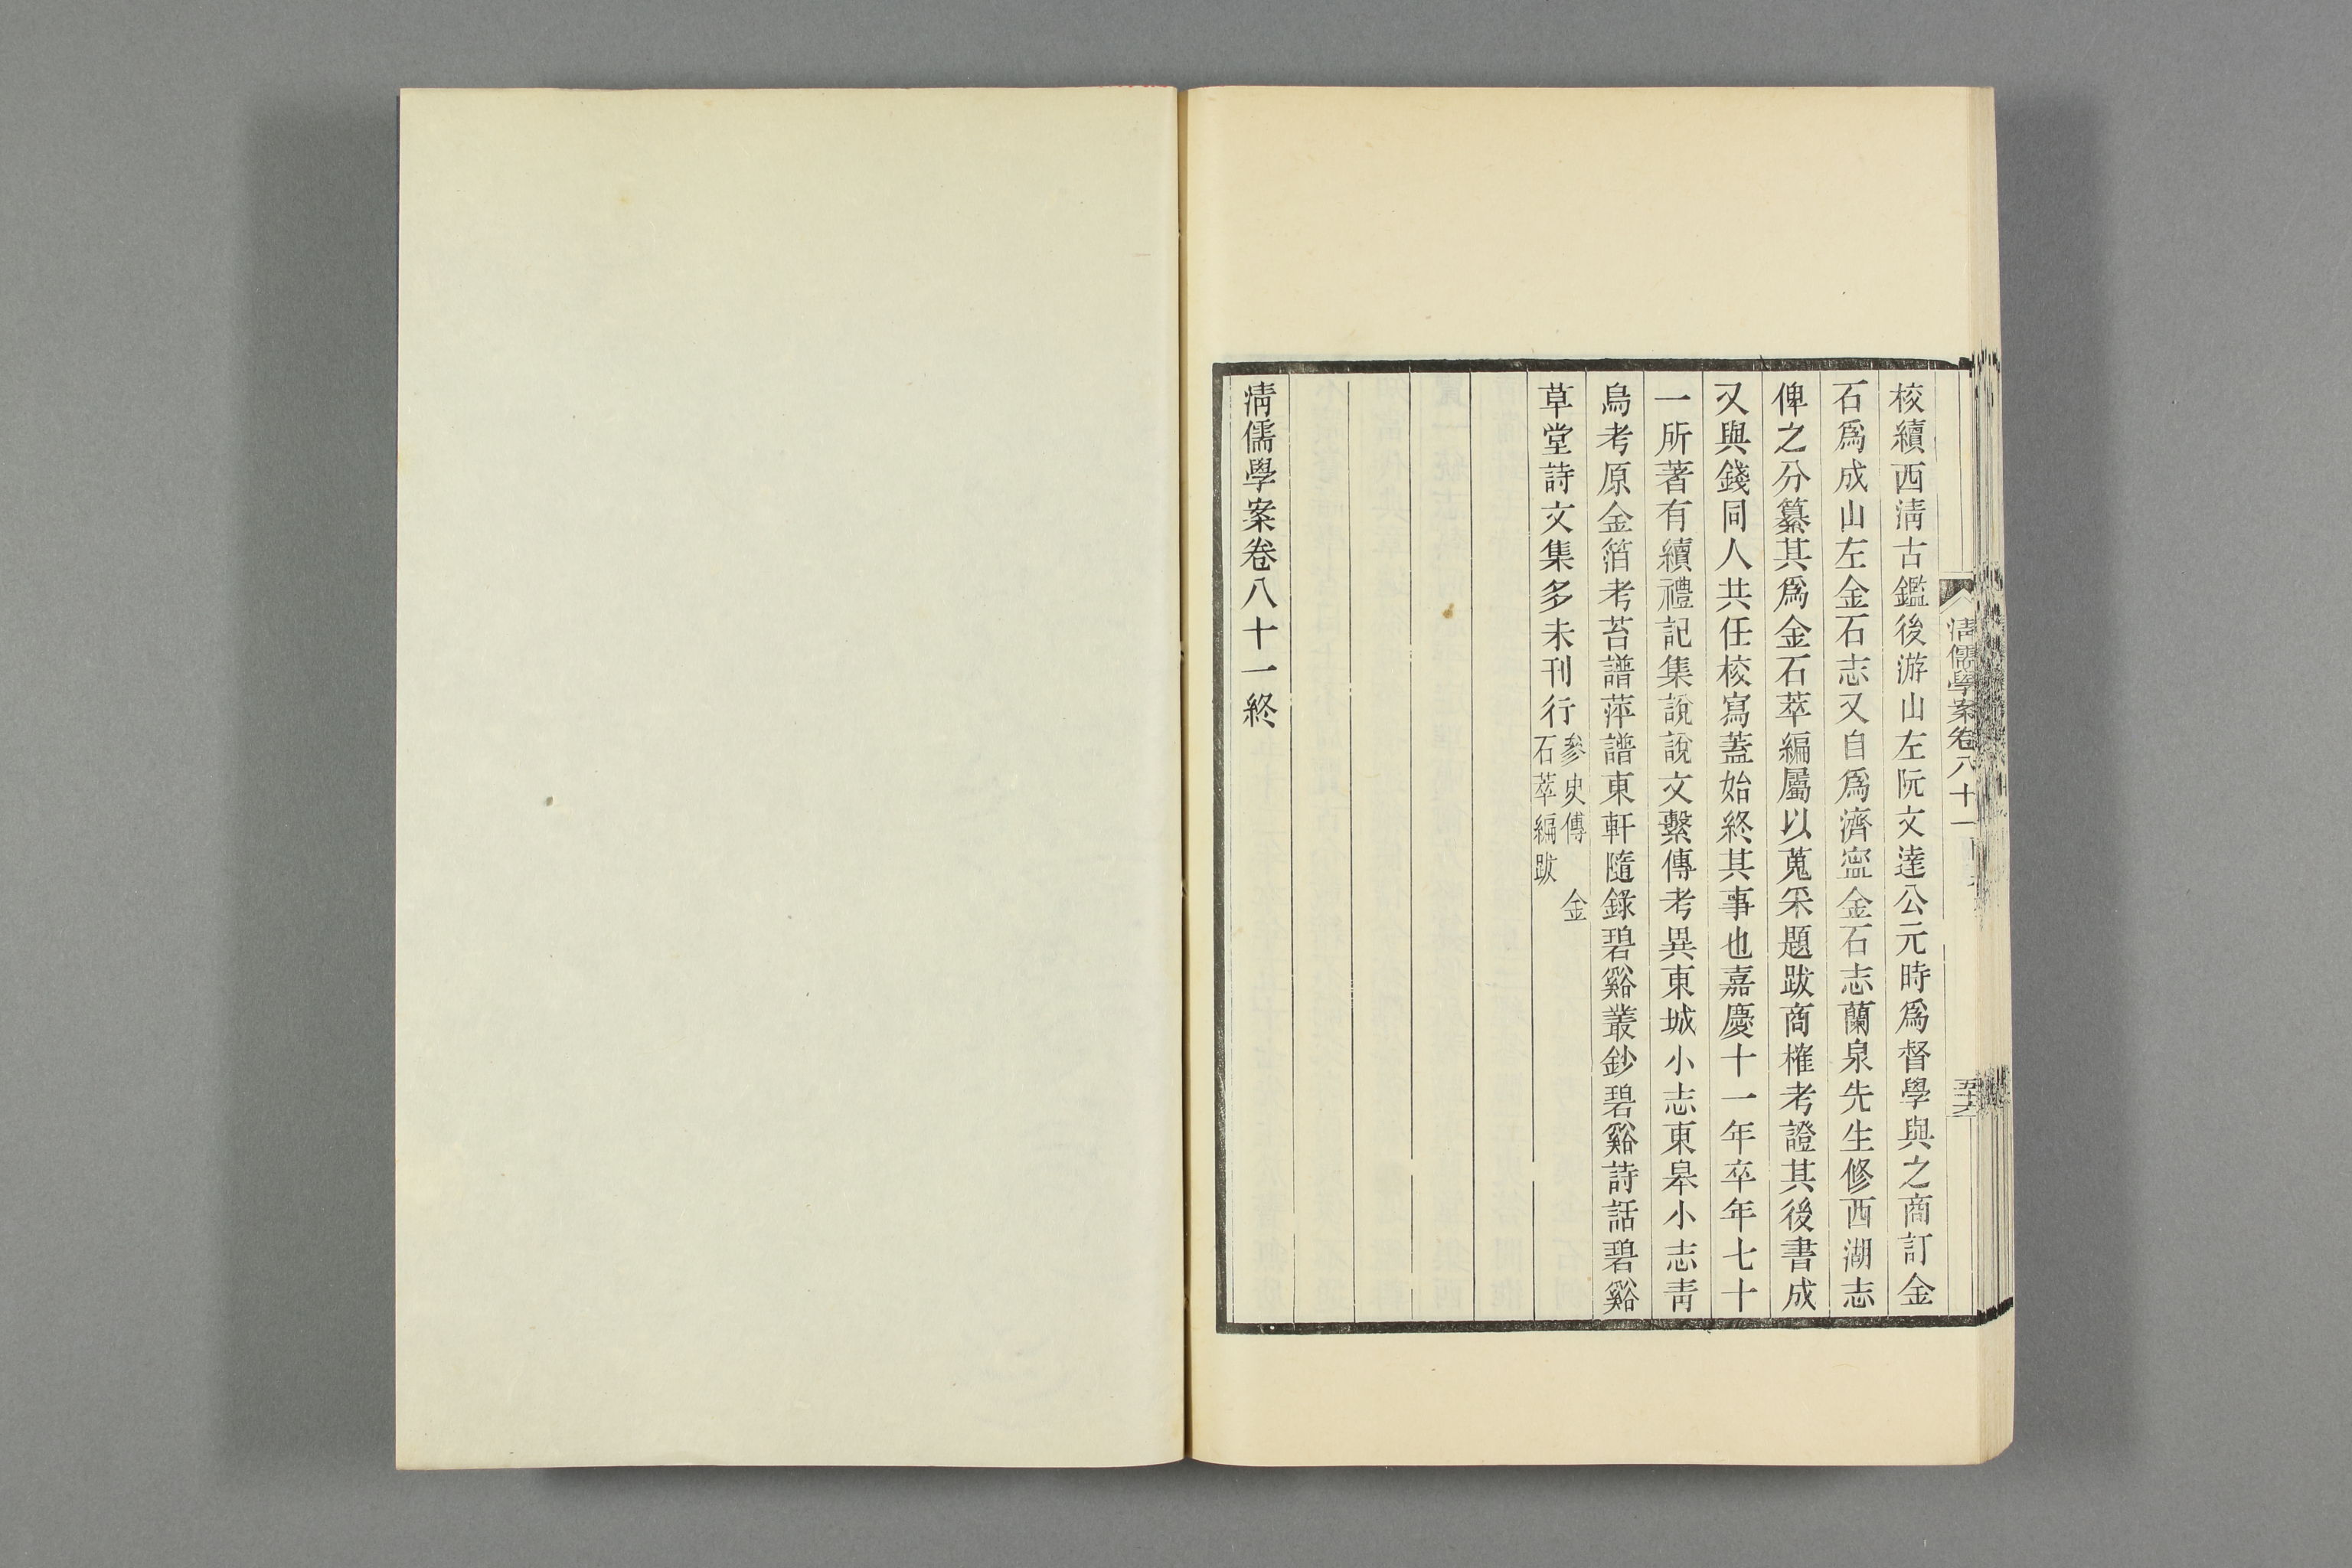 校續西淸古鑑後游山左阮文達公元時爲督學與之商訂金
石爲成山左金石志又自爲濟寍金石志蘭泉先生修西湖志
俾之分纂其爲金石萃編屬以蒐采題跋商榷考證其後書成
又與錢同人共任校寫蓋始終其事也嘉慶十一年卒年七十
一所著有續禮記集說說文繫傳考異東城小志東臯小志靑
烏考原金箔考苔譜萍譜東軒隨錄碧谿叢鈔碧谿詩話碧谿
草堂詩文集多未刊行參史傳 金
石萃編跋
淸儒學案卷八十一終
淸儒學案卷八十一
五十六